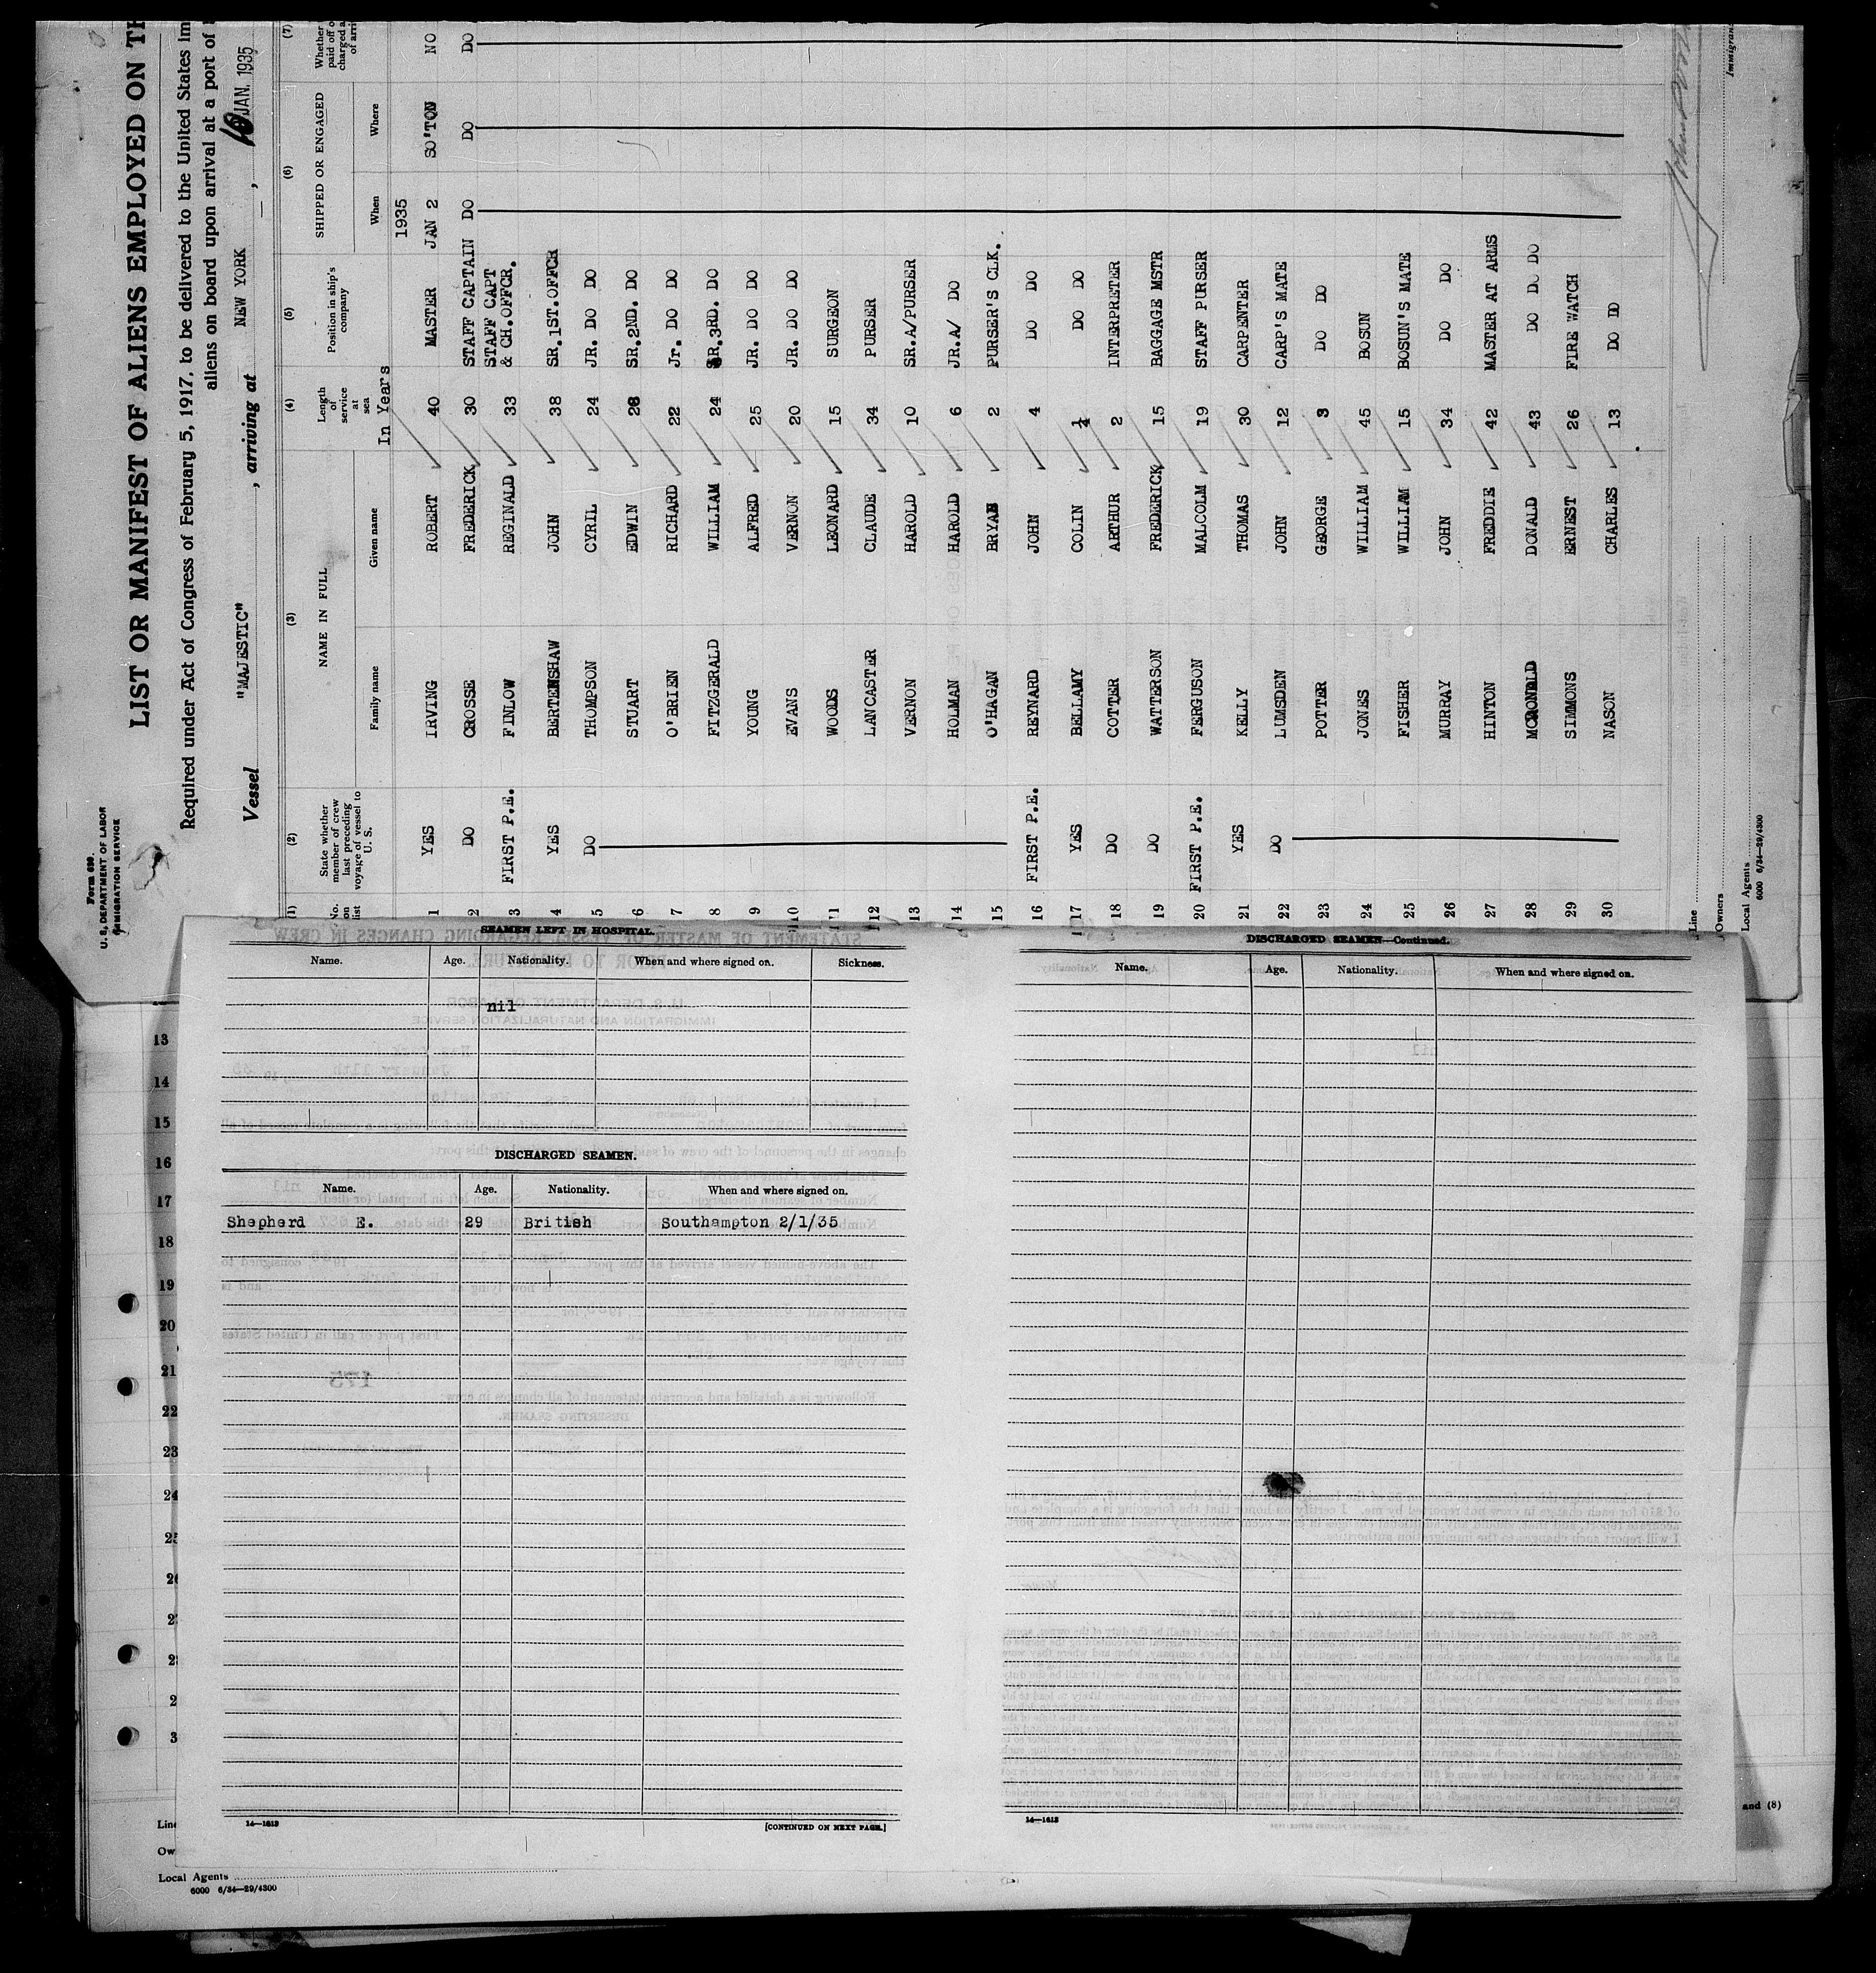 Form 680.
U. S. DEPARTMENT OF LABOR
IMMIGRATION SERVICE
LIST OR MANIFEST OF ALIENS EMPLOYED ON TH
Required under Act of Congress of February 5, 1917, to be delivered to the United States im
aliens on board upon arrival at a port of
Vessel "MAJESTIC", arriving at NEW YORK, 10 JAN. 1935
(1) (2) (3) (4) (5) (6) (7)
No. on list
State whether member of crew last preceding voyage of vessel to U. S.
NAME IN FULL
Family name Given name
Length of service at sea
In Years
Position in ship's company
SHIPPED OR ENGAGED
When Where
Whether paid off charged of arri
1935
1 YES IRVING ROBERT 40 MASTER JAN 2 SO'TON NO
2 DO CROSSE FREDERICK 30 STAFF CAPTAIN DO DO DO
3 FIRST P.E. FINLOW REGINALD 33 STAFF CAPT & CH.OFFCR.
4 YES BERTENSHAW JOHN 38 SR.1ST.OFFCR
5 DO THOMPSON CYRIL 24 JR. DO DO
6 STUART EDWIN 28 SR.2ND. DO
7 O'BRIEN RICHARD 22 Jr. DO DO
8 FITZGERALD WILLIAM 24 SR.3RD. DO
9 YOUNG ALFRED 25 JR. DO DO
10 EVANS VERNON 20 JR. DO DO
11 WOODS LEONARD 15 SURGEON
12 LANCASTER CLAUDE 34 PURSER
13 VERNON HAROLD 10 SR.A/PURSER
14 HOLMAN HAROLD 6 JR.A/ DO
15 O'HAGAN BRYAN 2 PURSER'S CLK.
16 FIRST P.E. REYNARD JOHN 4 DO DO
17 YES BELLAMY COLIN 1/4 DO DO
18 DO COTTER ARTHUR 2 INTERPRETER
19 DO WATTERSON FREDERICK 15 BAGGAGE MSTR
20 FIRST P.E. FERGUSON MALCOLM 19 STAFF PURSER
21 YES KELLY THOMAS 30 CARPENTER
22 DO LUMSDEN JOHN 12 CARP'S MATE
23 POTTER GEORGE 3 DO DO
24 JONES WILLIAM 45 BOSUN
25 FISHER WILLIAM 15 BOSUN'S MATE
26 MURRAY JOHN 34 DO DO
27 HINTON FREDDIE 42 MASTER AT ARMS
28 DONALD 43 DO DO DO
29 SIMMONS ERNEST 26 FIRE WATCH
30 NASON CHARLES 13 DO DO
Line
Owners
Local Agents
6000 6/34—29/4300
Immigran
SEAMEN LEFT IN HOSPITAL.
Name. Age. Nationality. When and where signed on. Sickness.
nil
DISCHARGED SEAMEN.
Name. Age. Nationality. When and where signed on.
Shepherd E. 29 British Southampton 2/1/35
14—1613 [CONTINUED ON NEXT PAGE.]
DISCHARGED SEAMEN—Continued.
Name. Age. Nationality. When and where signed on.
14—1613
13
14
15
16
17
18
19
20
21
22
23
24
25
and (8)
Line
Ow
Local Agents
6000 6/34—29/4300